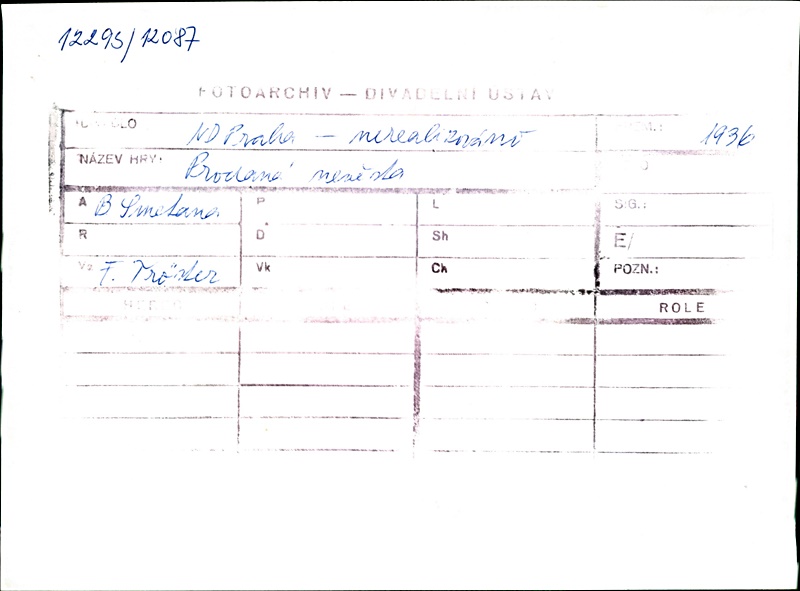 12295/12087
FOTOARCHIV — DIVADELNÍ ÚSTAV
DIVADLO ND Praha — nerealizováno 1936
NÁZEV HRY: Prodaná nevěsta
A B Smetana P L SIG.:
R D Sh E/
Vz F. Tröster Vk Ch POZN.:
ROLE